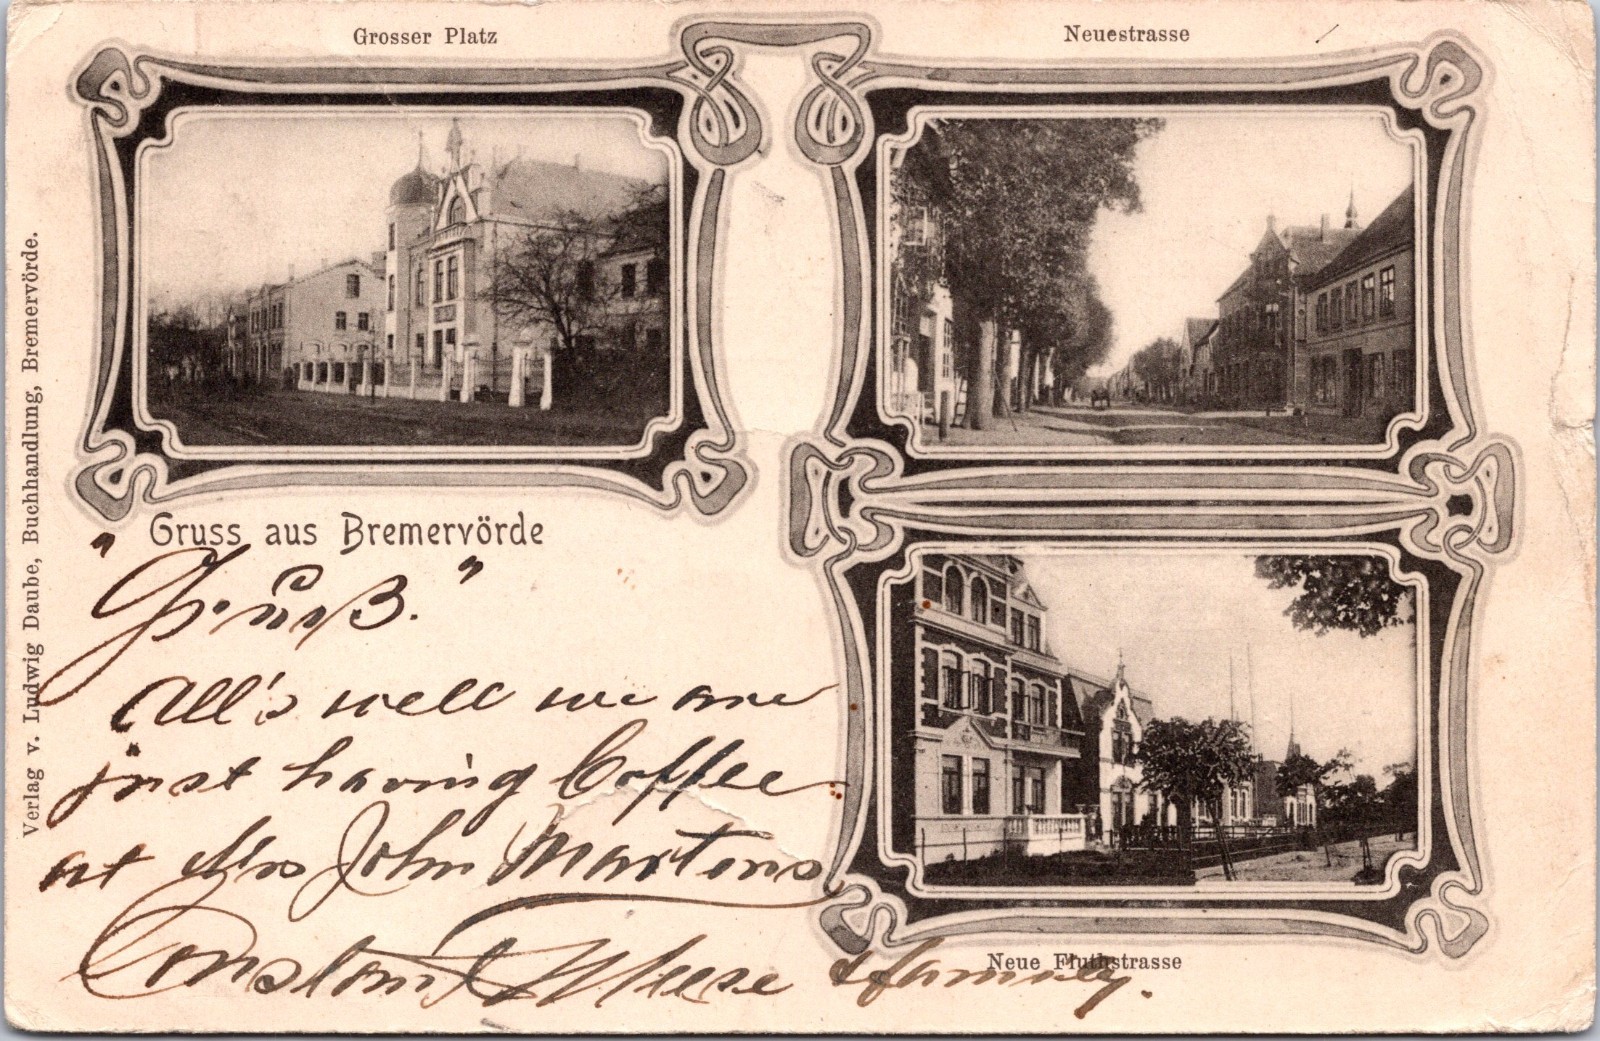 Grosser Platz
Neuestrasse
Verlag v. Ludwig Daube, Buchhandlung, Bremervörde.
Gruss aus Bremervörde
"Gruß."
All's well we are
just having Coffee
at Mrs John Martens
& family.
Neue Fluthstrasse